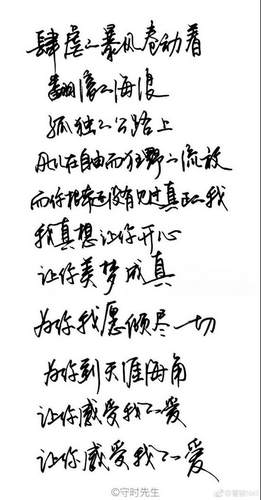 肆虐的暴风卷动着
翻滚的海浪
孤独的公路上
在自由而狂野的流放
而你根本没有见过真正的我
我真想让你开心
让你美梦成真
为你我愿倾尽一切
为你到天涯海角
让你感受我的爱
让你感受我的爱
©守时先生